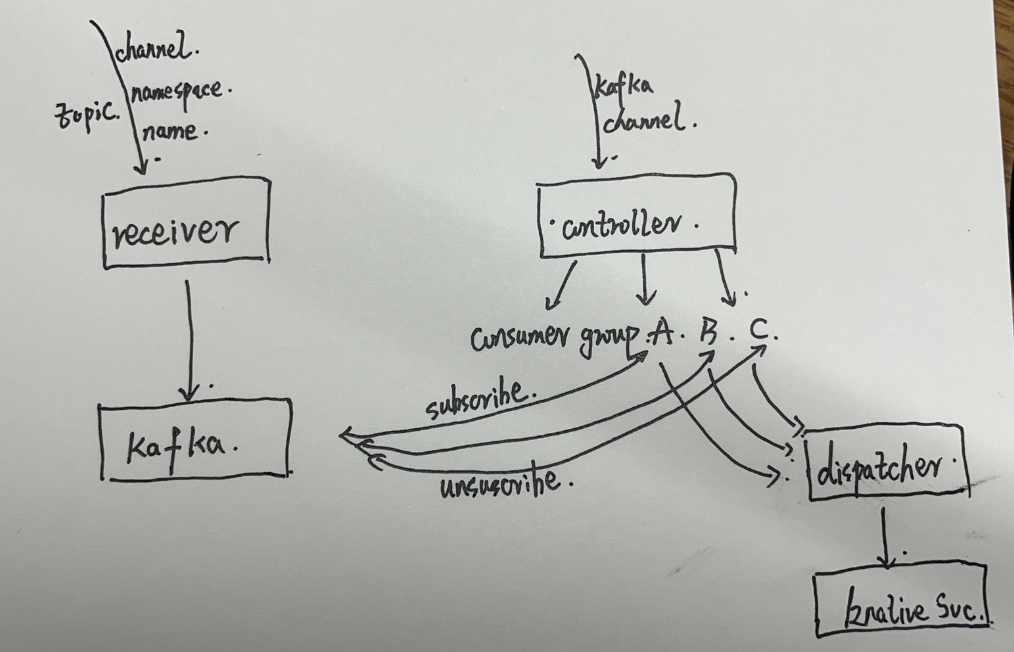 channel.
namespace.
topic.
name.
receiver
kafka.
kafka
channel.
controller.
consumer group. A. B. C.
subscribe.
unsuscribe.
dispatcher.
knative Svc.